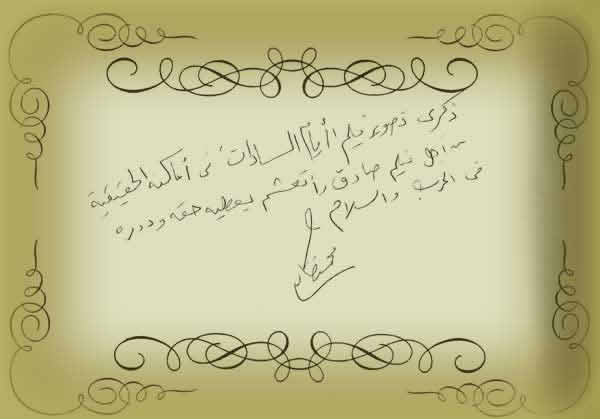 ذكرى تصوير فيلم "أيام السادات" فى أماكنه الحقيقية
من أجل فيلم صادق رائع يعطيه حقه ودوره
فى الحرب والسلام
محمد خان